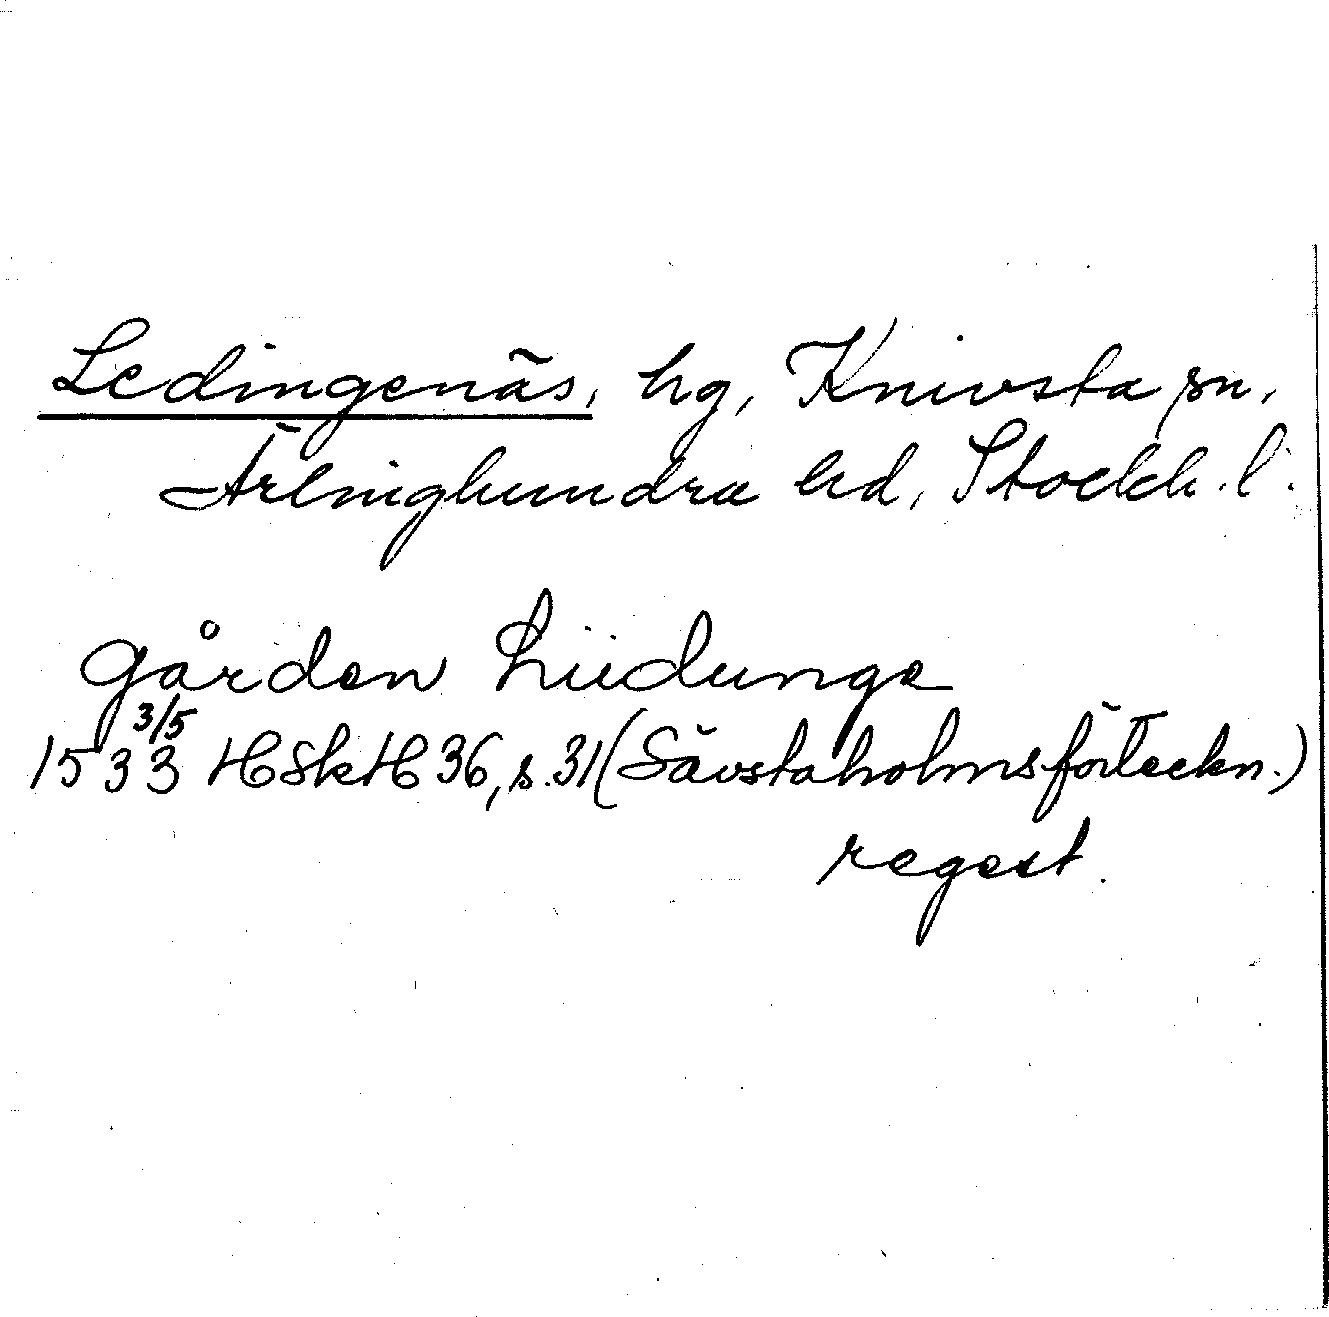 Ledingenäs, hg, Knivsta sn,
Ärlinghundra hd, Stockh. l.
gården Liidunge
1533 3/5 HSkH 36, s. 31 (Sävstaholmsförteckn.)
regest.